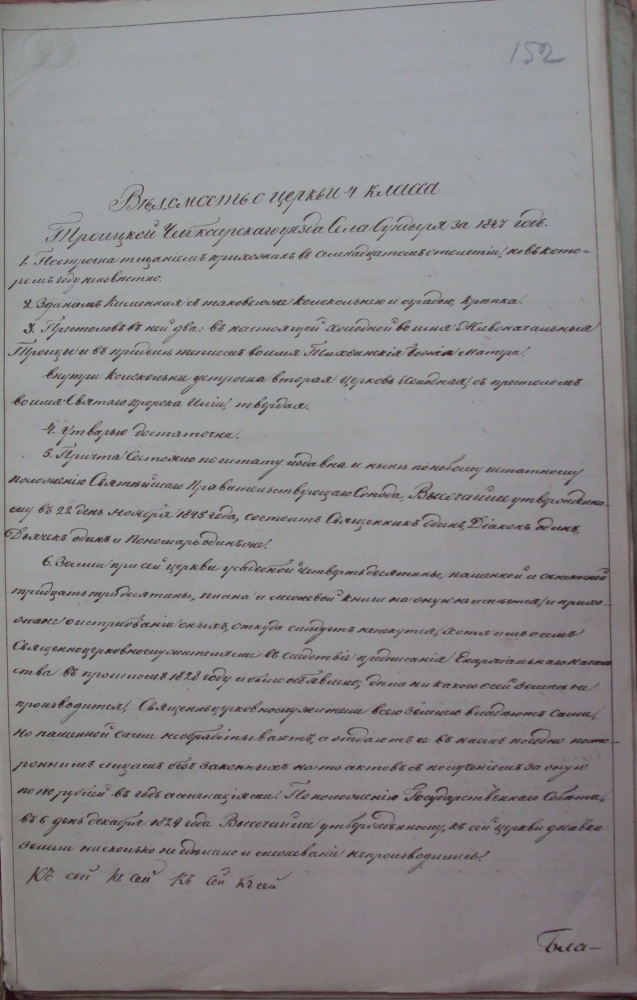 152
Вѣдомость о церкви 4 класса
Троицкой Чебоксарскаго уѣзда Села Сундыря за 1847 годъ.
1. Построена тщаніемъ прихожанъ въ семнадцатомъ столѣтіи, но въ кото-
ромъ году неизвѣстно.
2. Зданіемъ каменная съ таковою же колокольнею и оградою, крѣпка.
3. Престоловъ въ ней два: въ настоящей холодной во имя Живоначальныя
Троицы и въ придѣлѣ тепломъ во имя Тихвинскія Божія Матери.
Внутри колокольни устроена вторая церковь холодная, съ престоломъ
во имя Святаго пророка Иліи, твердая.
4. Утварью достаточна.
5. Причта состояло по штату издавна и нынѣ по новому штатному
положенію Святѣйшаго Правительствующаго Синода, Высочайше утвержденно-
му въ 22 день Ноября 1845 года, состоитъ Священникъ одинъ, Діаконъ одинъ,
Дьячекъ одинъ и Пономарь одинъ же.
6. Земли при сей церкви усадебной четверть десятины, пашенной и сѣнокосной
тридцать три десятины, плана и межевой книги на оную не имѣется, и прихо-
жане о истребованіи оныхъ, откуда слѣдуетъ не пекутся, хотя имъ о семъ
Священноцерковнослужителями въ слѣдствіе предписанія Епархіальнаго Началь
ства въ прошломъ 1828 году и было объявлено; дѣла ни какого о сей землѣ не
производится. Священноцерковнослужители всею землею владѣютъ сами,
но пашенной сами не обработываютъ, а отдаютъ ее въ наемъ погодно посто-
роннимъ лицамъ безъ законныхъ на то актовъ съ полученіемъ за оную
по рублей въ годъ ассигнаціями. По положенію Государственнаго Совѣта,
въ 6 день декабря 1829 года Высочайше утвержденному, къ сей церкви добавки
земли нисколько не сдѣлано и межеванія не производилось.
Къ сей Къ сей Къ сей Къ сей
Бла-